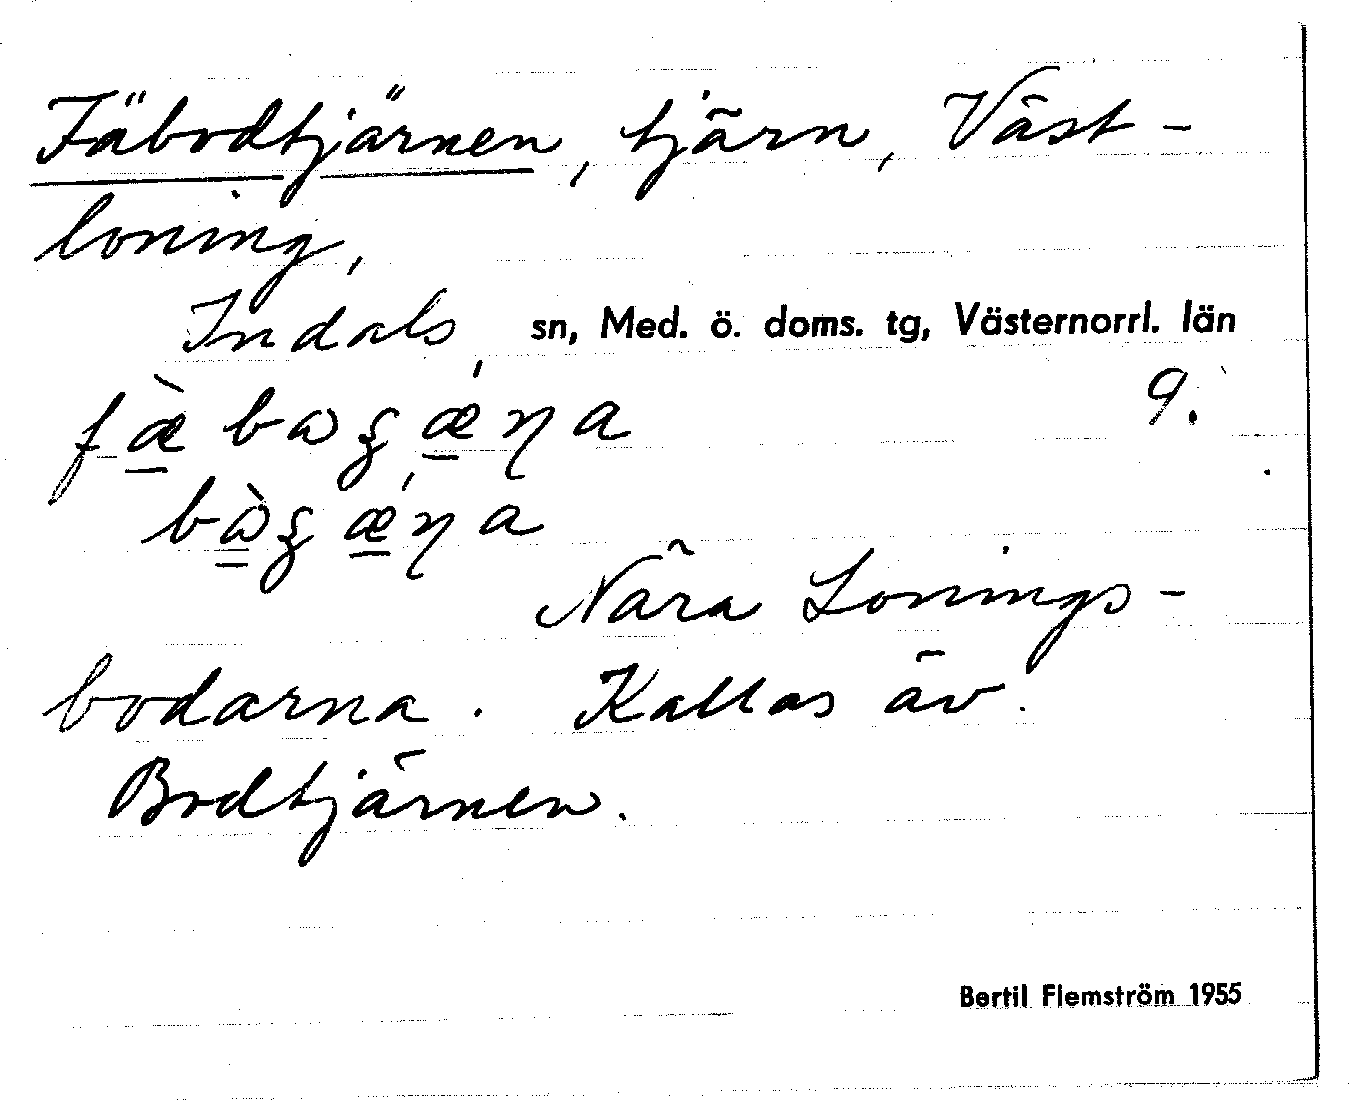 Fäbodtjärnen, tjärn, Väst-
loning,
Indals sn, Med. ö. doms. tg, Västernorrl. län
fæ̀bωʒǽɳa 9.
bὼʒǽɳa
Nära Lonings-
bodarna. Kallas äv.
Bodtjärnen.
Bertil Flemström 1955